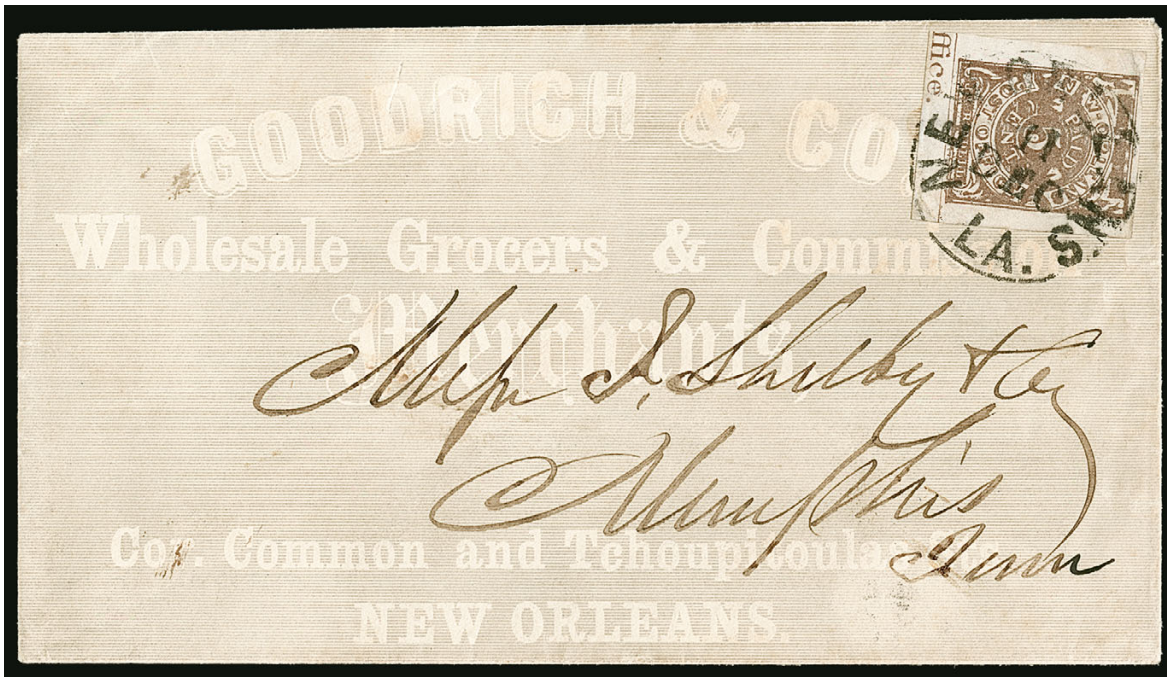 GOODRICH & CO.
Wholesale Grocers & Commission
Merchants,
Cor. Common and Tchoupitoulas Sts.
NEW ORLEANS.
ffice.
NEW ORLEANS
POST OFFICE
5
PAID
CENTS
NEW ORLEANS LA.
11
DEC
Mess J. Shelby & Co
Memphis
Tenn